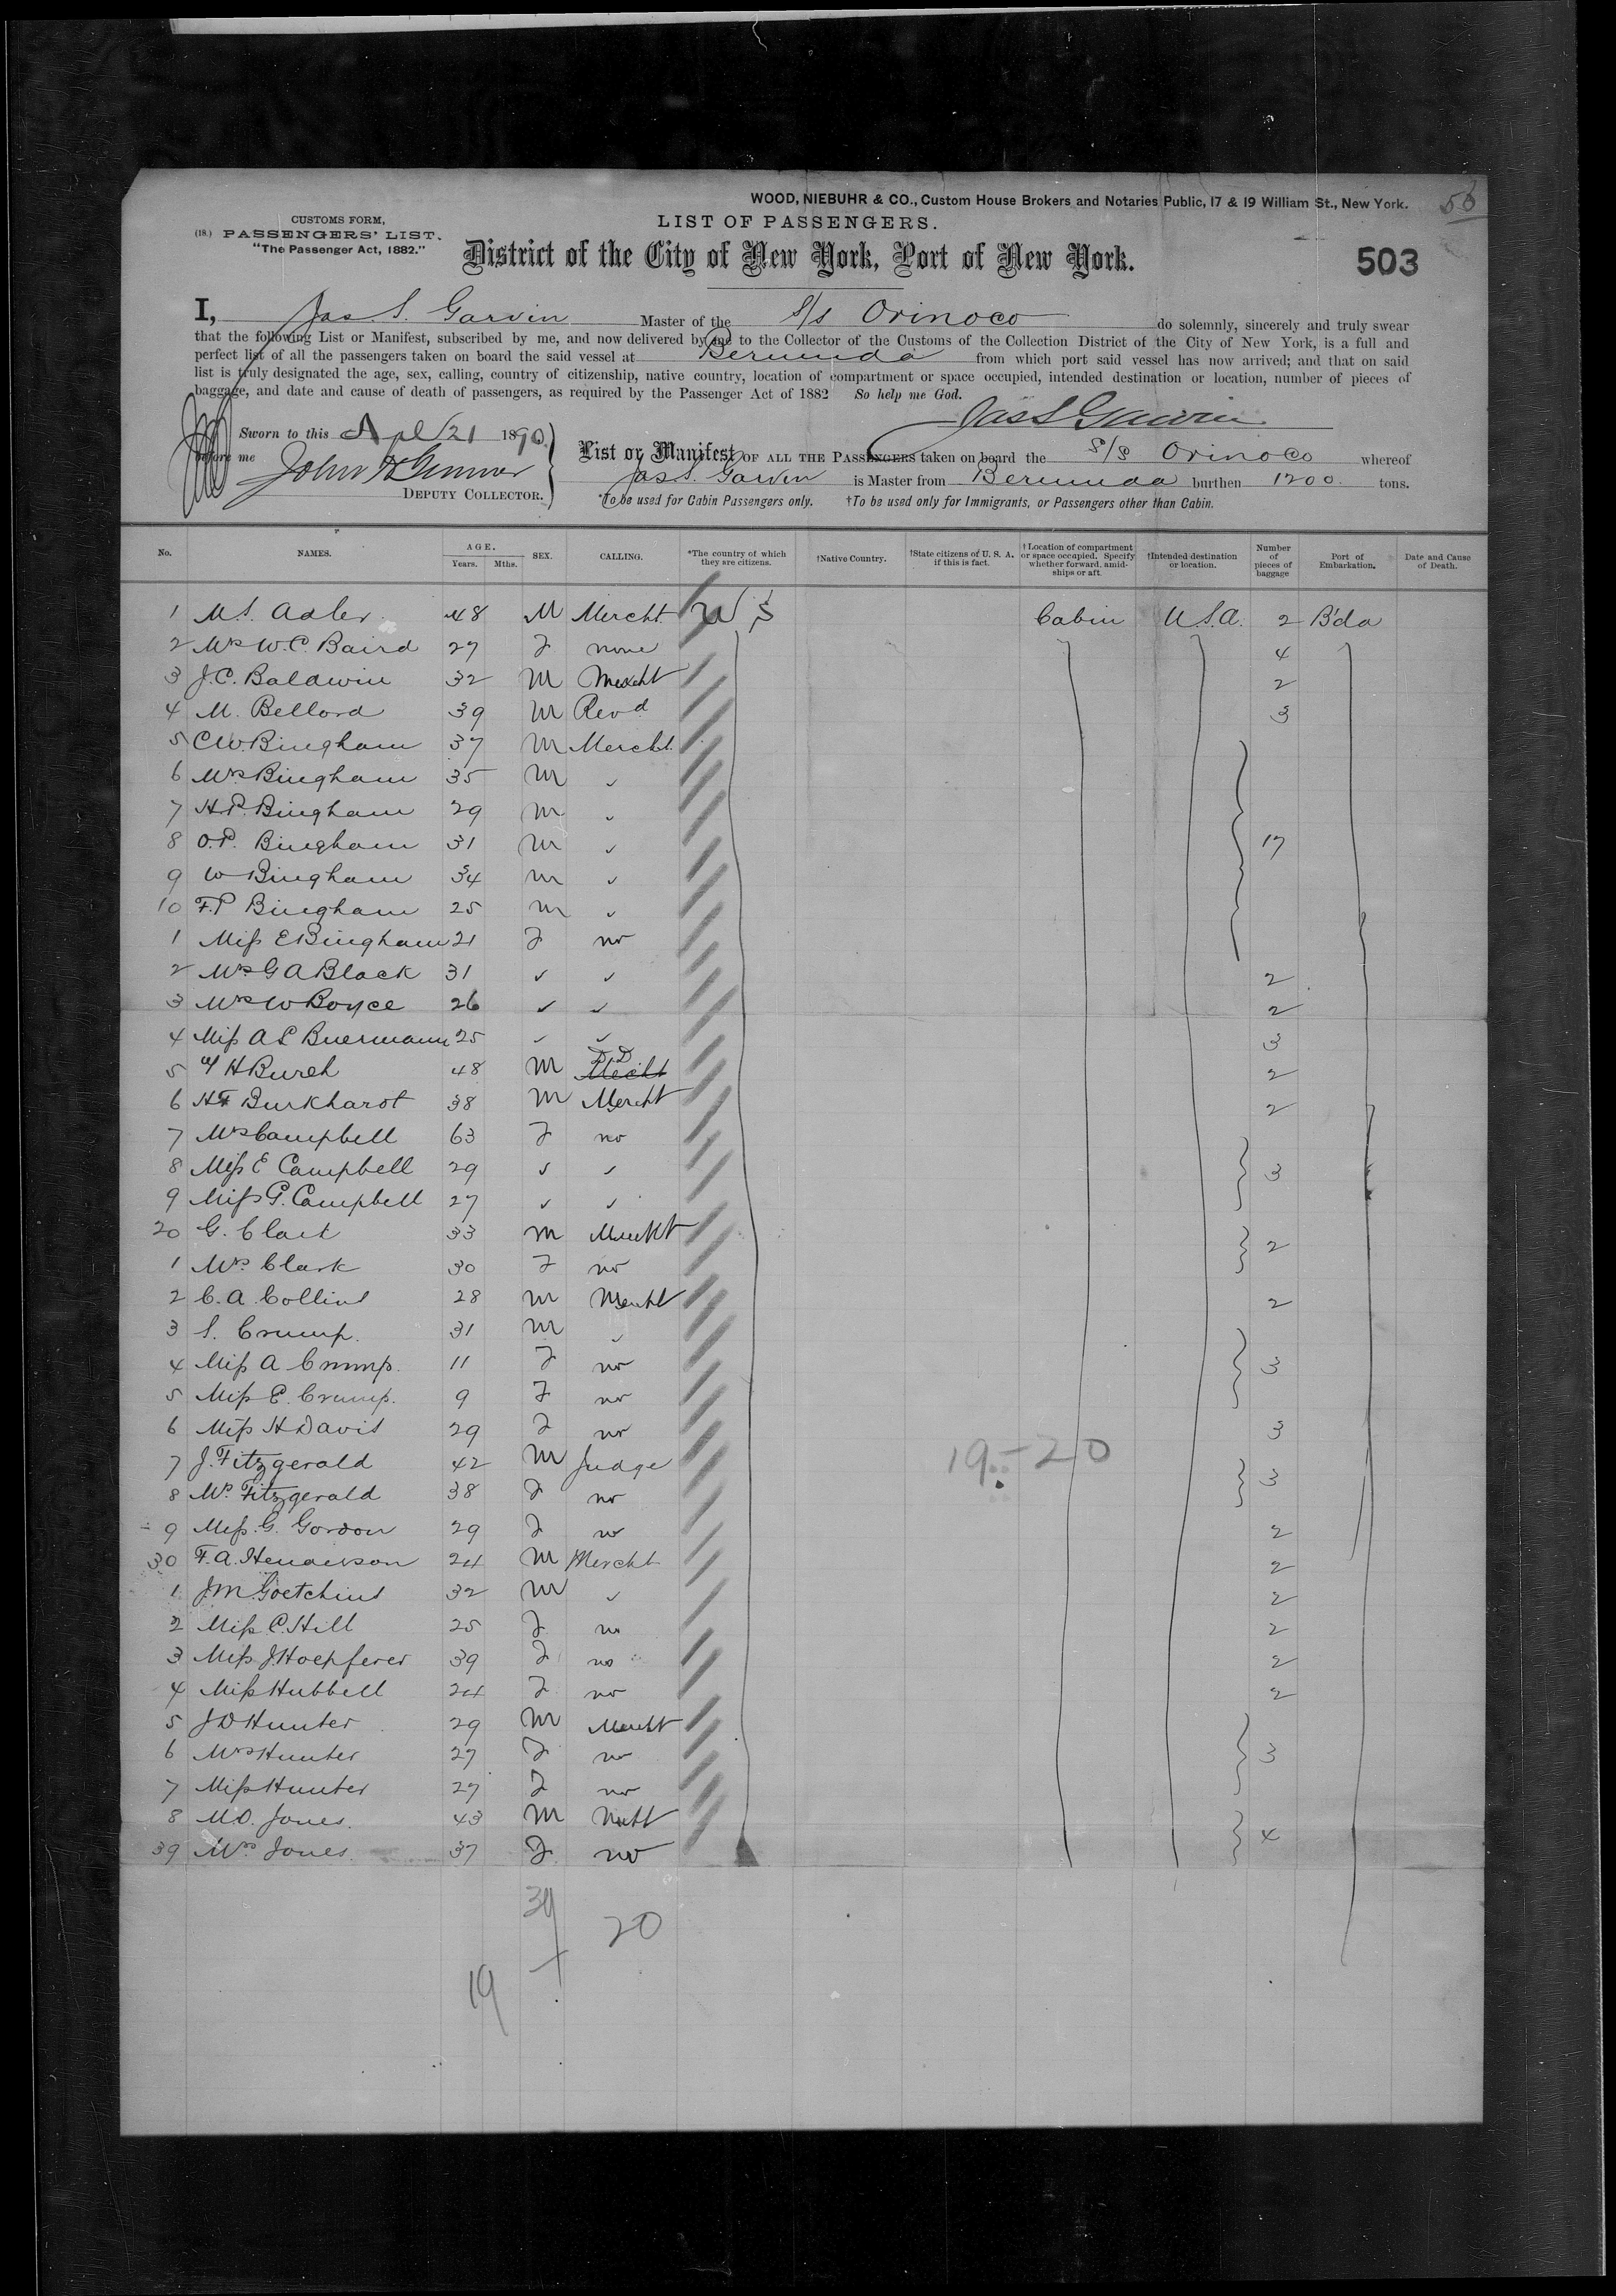 WOOD, NIEBUHR & CO., Custom House Brokers and Notaries Public, 17 & 19 William St., New York.
CUSTOMS FORM,
LIST OF PASSENGERS.
(18.) PASSENGERS' LIST.
"The Passenger Act, 1882."
District of the City of New York, Port of New York.
503
I, Jas S. Garvin Master of the S/S Orinoco do solemnly, sincerely and truly swear
that the following List or Manifest, subscribed by me, and now delivered by me to the Collector of the Customs of the Collection District of the City of New York, is a full and
perfect list of all the passengers taken on board the said vessel at Bermuda from which port said vessel has now arrived; and that on said
list is truly designated the age, sex, calling, country of citizenship, native country, location of compartment or space occupied, intended destination or location, number of pieces of
baggage, and date and cause of death of passengers, as required by the Passenger Act of 1882 So help me God.
Jas S Garvin
Sworn to this Apl 21 1890
before me John
DEPUTY COLLECTOR.
List or Manifest OF ALL THE PASSENGERS taken on board the S/S Orinoco whereof
Jas S. Garvin is Master from Bermuda burthen 1200 tons.
*To be used for Cabin Passengers only. †To be used only for Immigrants, or Passengers other than Cabin.
No. NAMES. AGE. Years. Mths. SEX. CALLING. *The country of which they are citizens. †Native Country. †State citizens of U. S. A. if this is fact. †Location of compartment or space occupied. Specify whether forward, amidships or aft. †Intended destination or location. Number of pieces of baggage Port of Embarkation. Date and Cause of Death.
1 M.S. Adler 48 M Mercht. U S Cabin U.S.A. 2 B'da
2 Mrs W.C. Baird 27 F none 4
3 J.C. Baldwin 32 M Mercht 2
4 M. Bellord 39 M Revd 3
5 C.W. Bingham 37 M Mercht.
6 Mrs Bingham 35 M ✓
7 H.P. Bingham 29 M ✓
8 O.P. Bingham 31 M ✓ 17
9 W Bingham 34 M ✓
10 F.P Bingham 25 M ✓
1 Miss E Bingham 21 F no
2 Mrs G A Black 31 ✓ ✓ 2
3 Mrs W Boyce 26 ✓ ✓ 2
4 Miss A L Buermann 25 ✓ ✓ 3
5 H Burch 48 M Mecht DD 2
6 H F Burkhardt 38 M Mercht 2
7 Mrs Campbell 63 F no
8 Miss E Campbell 29 ✓ ✓ 3
9 Miss G. Campbell 27 ✓ ✓
20 G. Clark 33 M Mercht
1 Mrs. Clark 30 F no 2
2 C. A. Collins 28 M Mercht 2
3 S. Crump. 31 M ✓
4 Miss A Crump. 11 F no 3
5 Miss E. Crump. 9 F no
6 Miss H Davis 29 F no 3
7 J. Fitzgerald 42 M Judge
19-20
8 Mrs. Fitzgerald 38 F no 3
9 Miss. G. Gordon 29 F no 2
30 F. A. Henderson 24 M Mercht 2
1 J.M. Goetchius 32 M ✓ 2
2 Miss C. Hill 25 F no 2
3 Miss J. Hoepferer 39 F no 2
4 Miss Hubbell 24 F no 2
5 J D Hunter 29 M Mercht
6 Mrs Hunter 27 F no 3
7 Miss Hunter 27 F no
8 M.O. Jones. 43 M Mcht
39 Mrs Jones. 37 F no 4
39
20
19